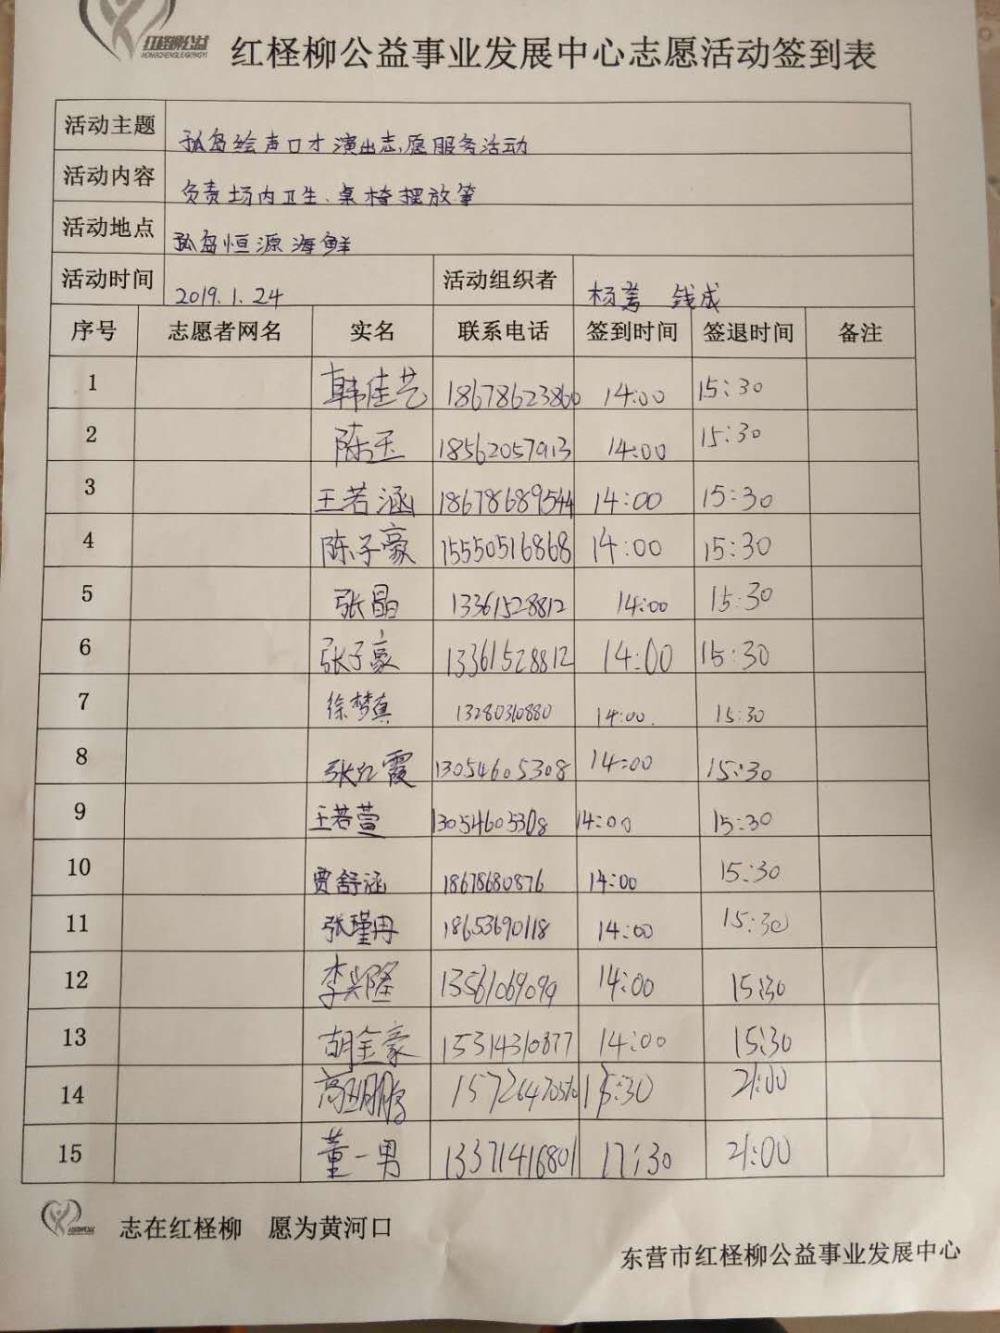 红柽柳公益
HONGCHENGLIUGONGYI
红柽柳公益事业发展中心志愿活动签到表
活动主题 孤岛绘声口才演出志愿服务活动
活动内容 负责场内卫生、桌椅摆放等
活动地点 孤岛恒源海鲜
活动时间 2019.1.24 活动组织者 杨 钱成
序号 志愿者网名 实名 联系电话 签到时间 签退时间 备注
1 韩佳艺 18678623860 14:00 15:30
2 陈玉 18562057913 14:00 15:30
3 王若涵 18678689544 14:00 15:30
4 陈子豪 15550516868 14:00 15:30
5 张晶 13361528812 14:00 15:30
6 张子豪 13361528812 14:00 15:30
7 徐梦真 13280310880 14:00 15:30
8 张红霞 13054605308 14:00 15:30
9 王若萱 13054605308 14:00 15:30
10 贾舒涵 18678680876 14:00 15:30
11 张瑾冉 18653690118 14:00 15:30
12 李兴隆 13561069099 14:00 15:30
13 胡金豪 15314310877 14:00 15:30
14 高鹏 21:00
15 董一男 13371416801 17:30 21:00
志在红柽柳 愿为黄河口
东营市红柽柳公益事业发展中心